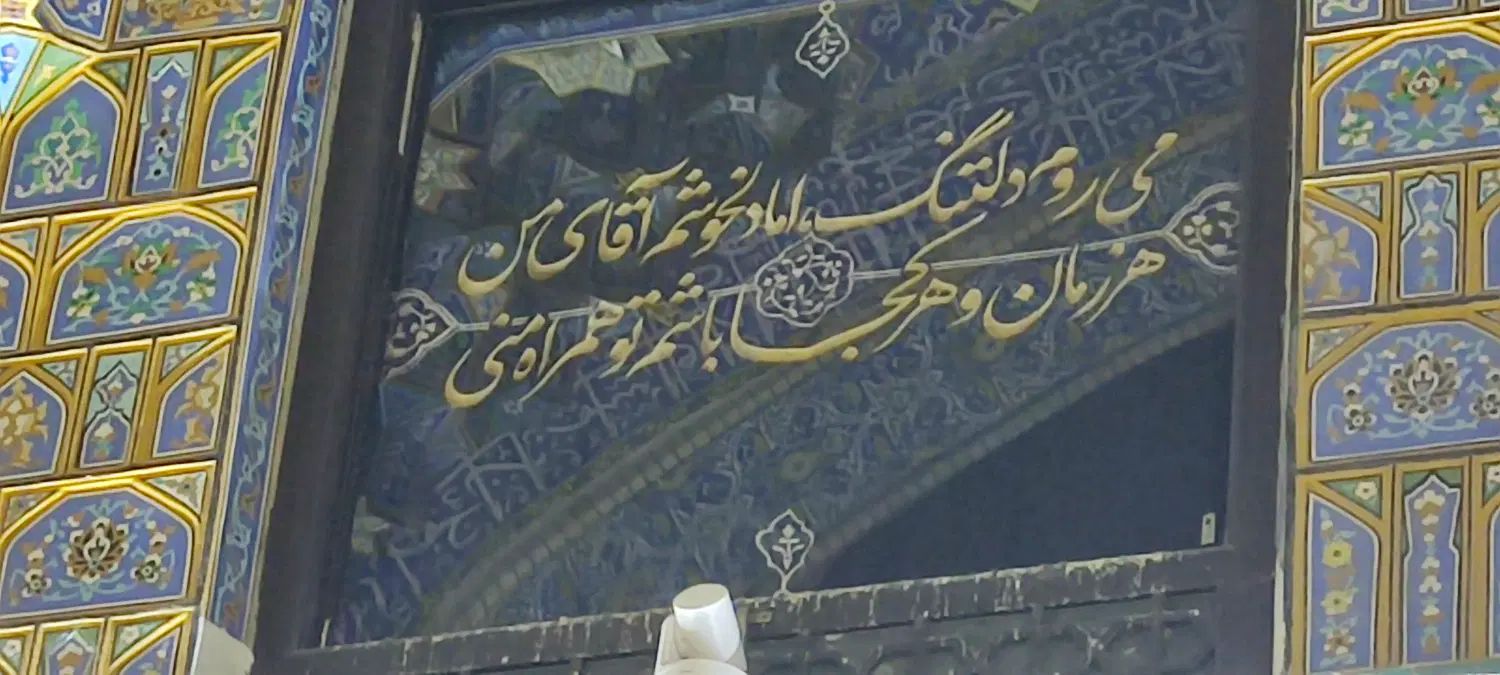 می روم دلتنگ، اما دلخوشم آقای من
هر زمان و هر کجا باشم تو همراه منی